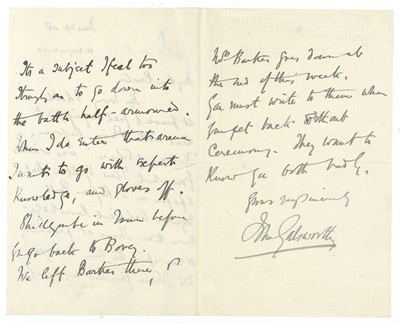 Its a subject I feel too
strongly on to go down into
the battle half-armoured.
When I do enter that arena
I want to go with expert
Knowledge, and gloves off.
Shall you be in Town before
you go back to Bovey.
We left Barker there,
Mrs Barker goes down at
the end of this week.
You must write to them when
you get back without
Ceremony. They want to
Know you both badly.
Yours very sincerely
John Galsworthy